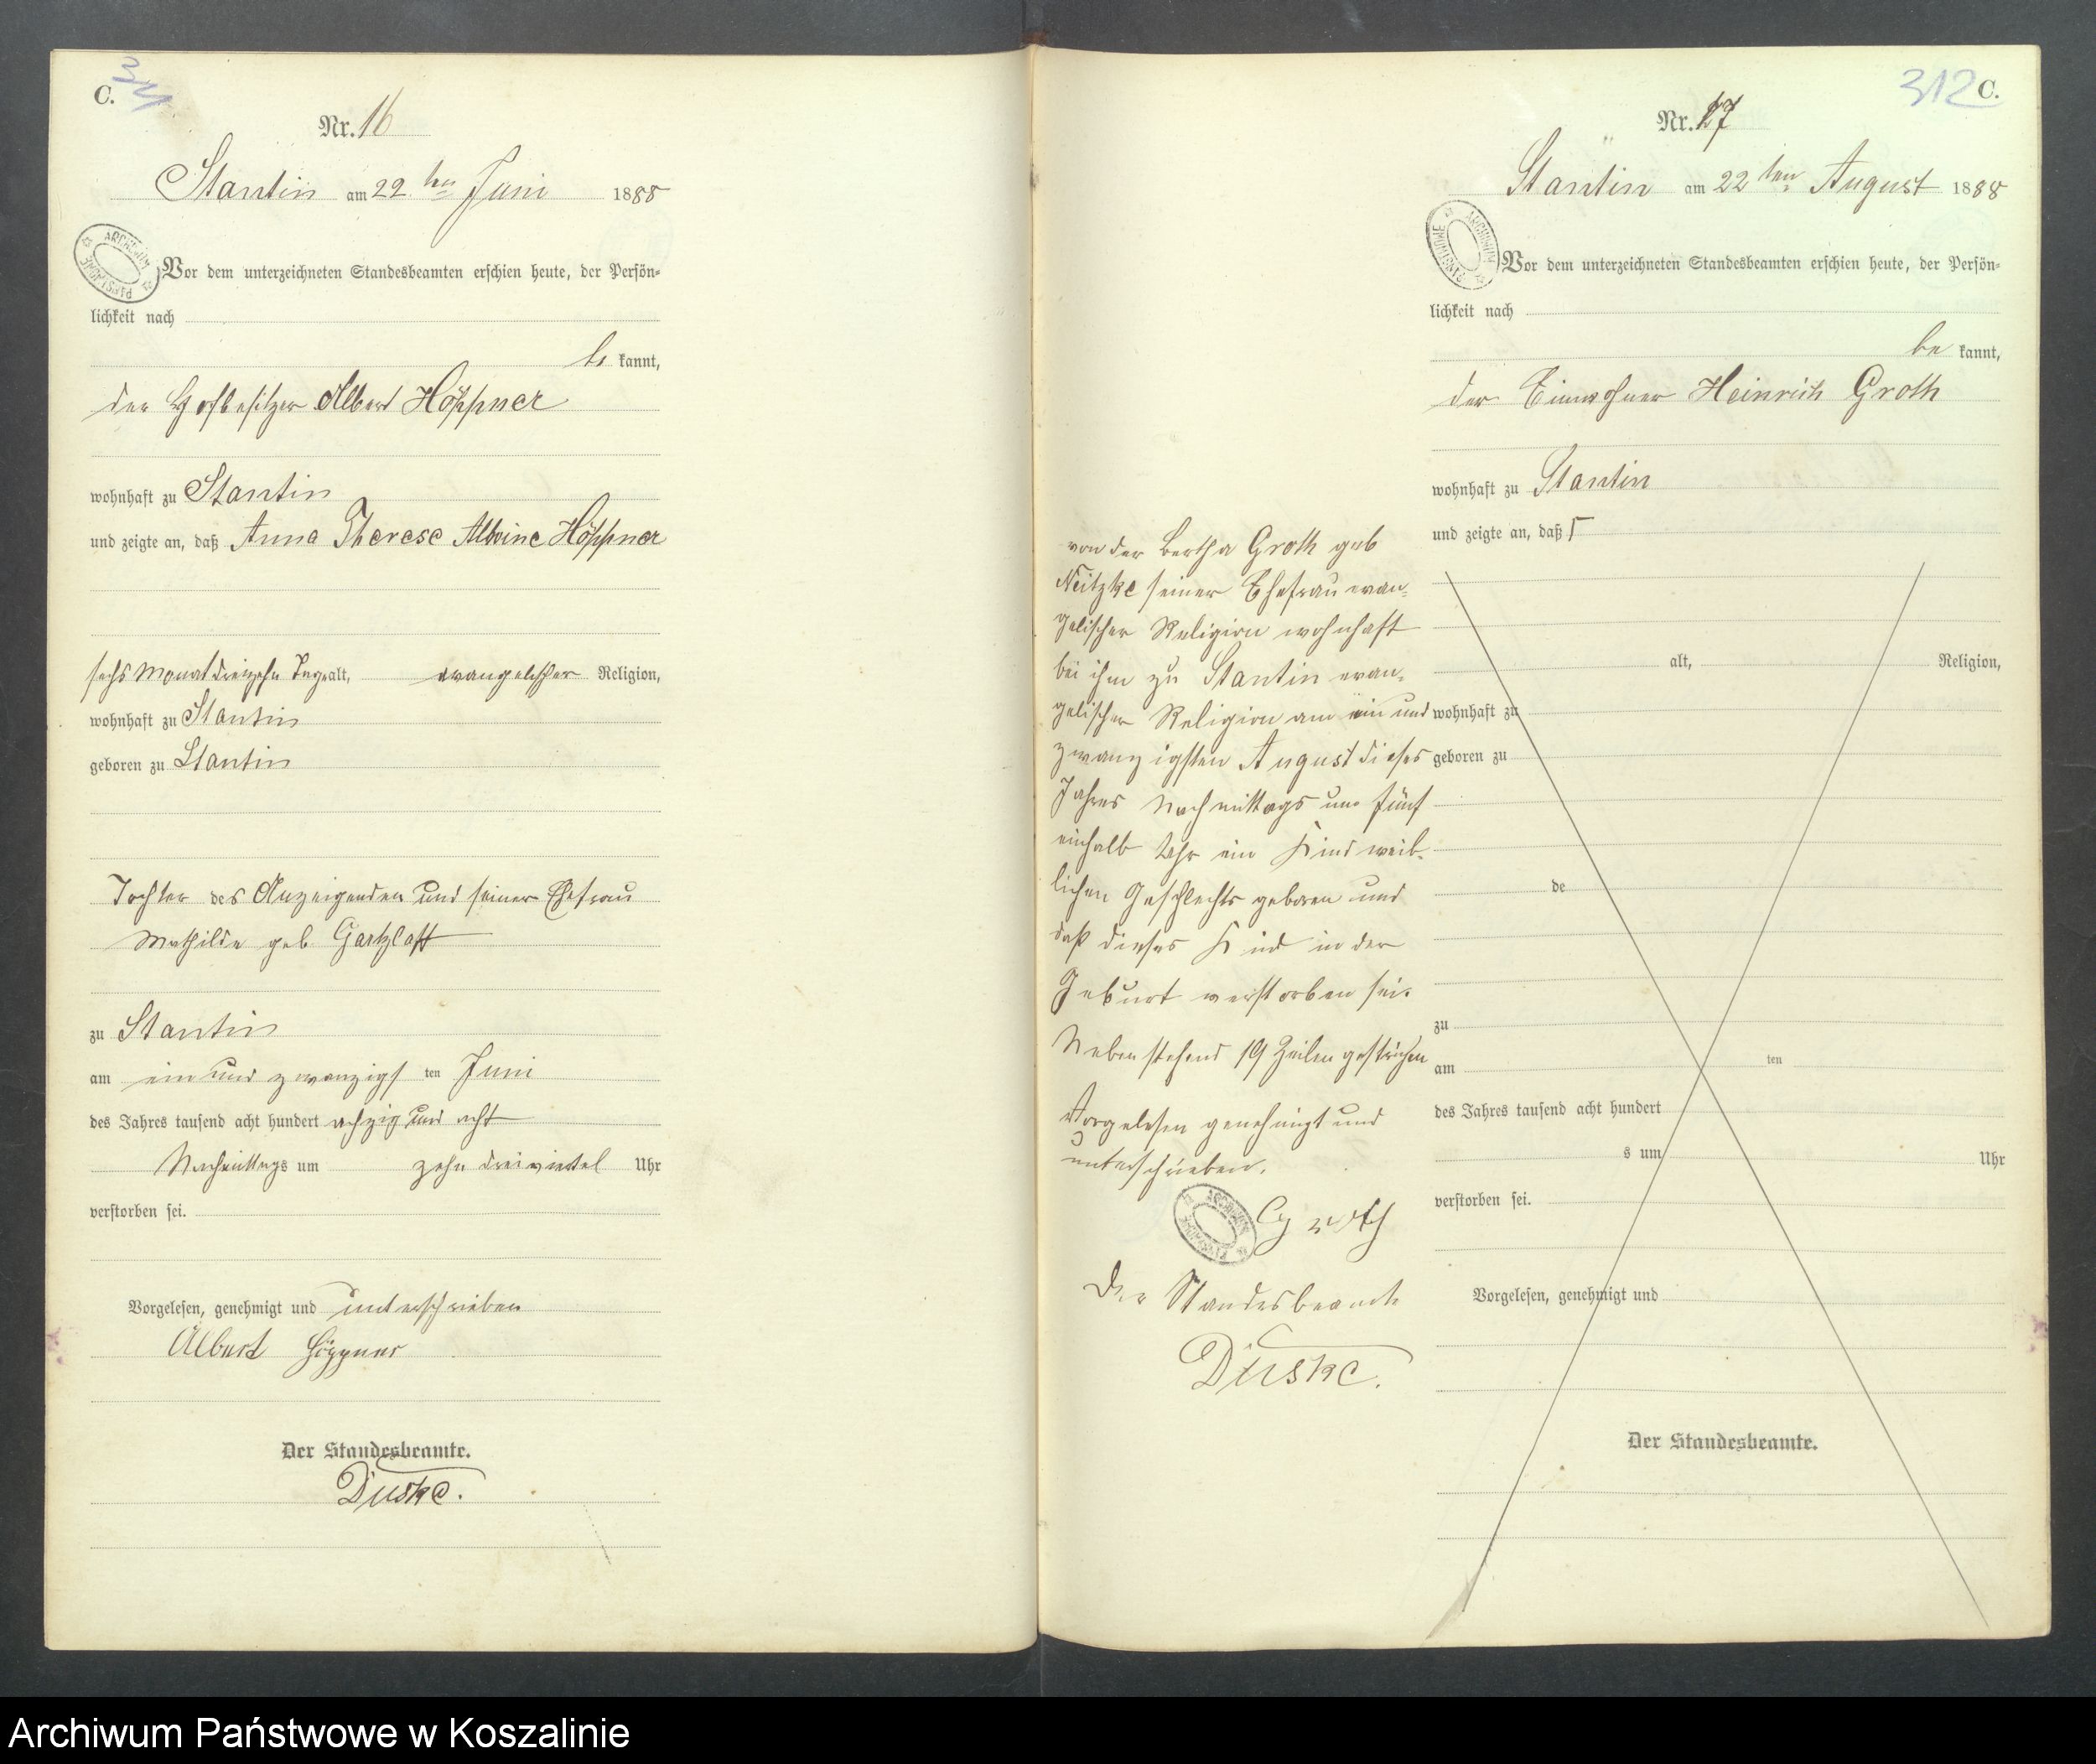 C.
311
Nr. 16
Stantin am 22 ten Juni 1888
ARCHIWUM PAŃSTWOWE
Vor dem unterzeichneten Standesbeamten erschien heute, der Persön-
lichkeit nach
be kannt,
der Hofbesitzer Albert Höppner
wohnhaft zu Stantin
und zeigte an, daß Anna Therese Albine Höppner
sechs Monat dreizehn Tage alt, evangelischer Religion,
wohnhaft zu Stantin
geboren zu Stantin
Tochter des Anzeigenden und seiner Ehefrau
Mathilde geb Gartzlaff
zu Stantin
am ein und zwanzigs ten Juni
des Jahres tausend acht hundert achzig und acht
Nachmittags um zehn dreiviertel Uhr
verstorben sei.
Vorgelesen, genehmigt und unterschrieben
Albert Höppner
Der Standesbeamte.
Duske.
312 C.
Nr. 17
Stantin am 22 ten August 1888
ARCHIWUM PAŃSTWOWE
Vor dem unterzeichneten Standesbeamten erschien heute, der Persön-
lichkeit nach
be kannt,
der Einwohner Heinrich Groth
wohnhaft zu Stantin
und zeigte an, daß
von der Bertha Groth geb
Neitzke seiner Ehefrau evan-
gelischer Religion wohnhaft
bei ihm zu Stantin evan-
gelischer Religion am ein und
zwanzigsten August dieses
Jahres Nachmittags um fünf
einhalb Uhr ein Kind weib-
lichen Geschlechts geboren und
daß dieses Kind in der
Geburt verstorben sei.
Nebenstehend 19 Zeilen gestrichen
Vorgelesen genehmigt und
unterschrieben.
ARCHIWUM PAŃSTWOWE
Groth
Der Standesbeamte
Duske.
alt, Religion,
wohnhaft zu
geboren zu
de
zu
am ten
des Jahres tausend acht hundert
s um Uhr
verstorben sei.
Vorgelesen, genehmigt und
Der Standesbeamte.
Archiwum Państwowe w Koszalinie